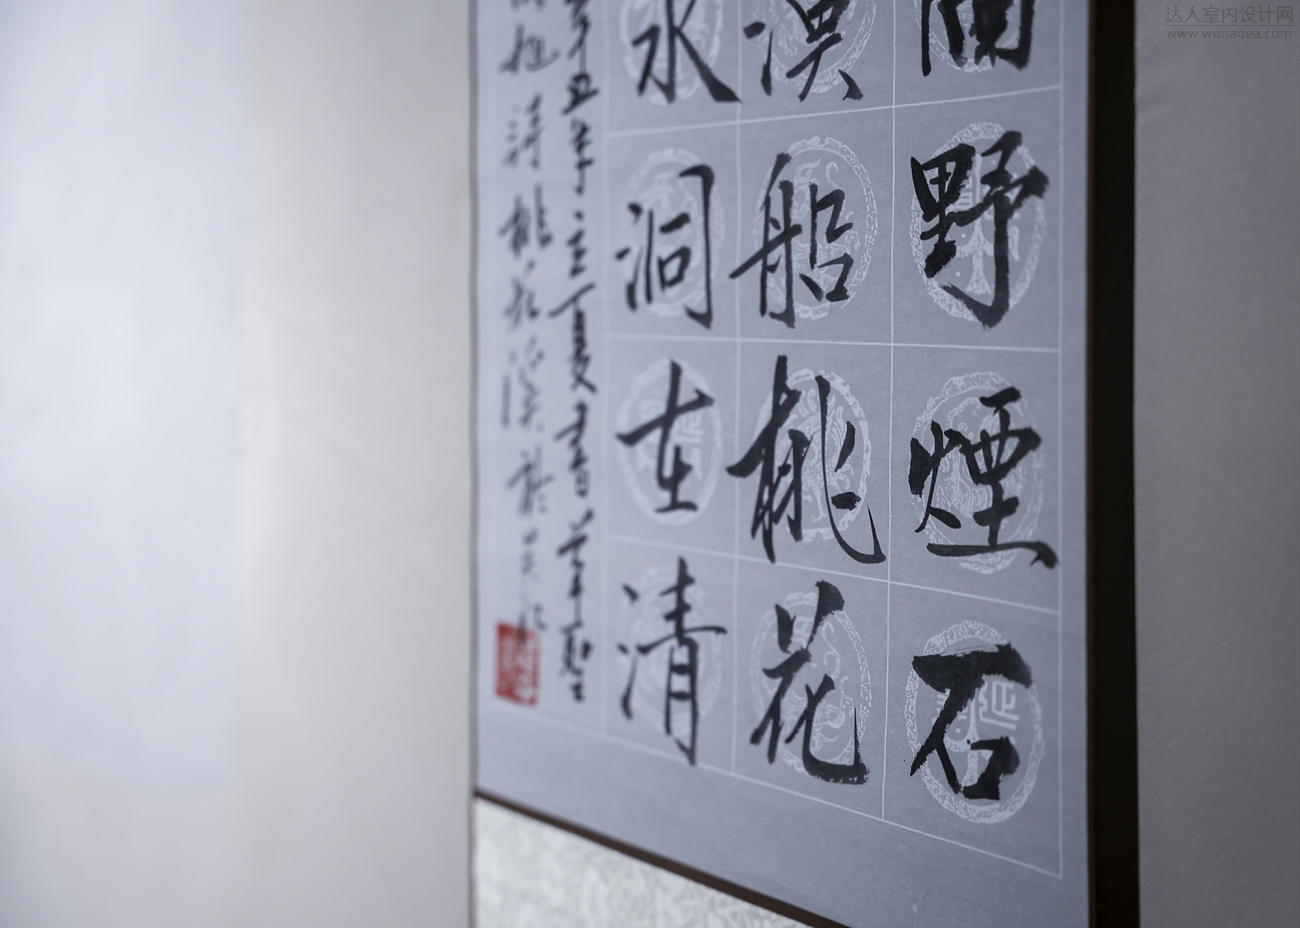 达人室内设计网
www.wonadea.com
野煙石
漁船桃花
水洞在清
辛丑年立夏書
旭詩桃花溪於